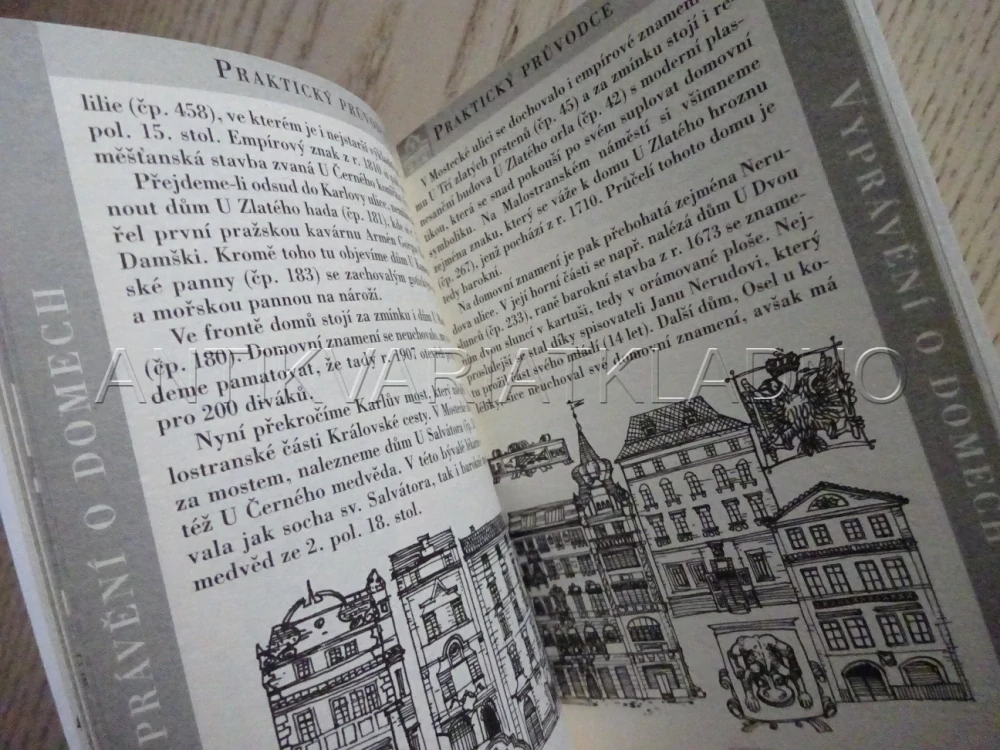 PRAKTICKÝ PRŮVODCE
lilie (čp. 458), ve kterém je i nejstarší
pol. 15. stol. Empírový znak z r. 1840
měšťanská stavba zvaná U Černého
Přejdeme-li odsud do Karlovy ulice,
nout dům U Zlatého hada (čp. 181), kde
řel první pražskou kavárnu Armén
Damški. Kromě toho tu objevíme dům U
ské panny (čp. 183) se zachovalým
a mořskou pannou na nároží.
Ve frontě domů stojí za zmínku i dům
(čp. 180). Domovní znamení se neuchovalo,
deme pamatovat, že tady r. 1907
pro 200 diváků.
Nyní překročíme Karlův most, který
lostranské části Královské cesty. V
za mostem, nalezneme dům U Salvátora
též U Černého medvěda. V této bývalé
vala jak socha sv. Salvátora, tak i
medvěd ze 2. pol. 18. stol.
PRÁVĚNÍ O DOMECH
PRAKTICKÝ PRŮVODCE
V Mostecké ulici se dochovalo i empírové znamení
mu U Tří zlatých prstenů (čp. 45) a za zmínku stojí i re-
nesanční budova U Zlatého orla (čp. 42) s moderní plas-
tikou, která se snad pokouší po svém suplovat domovní
symboliku. Na Malostranském náměstí si všimneme
nejména znaku, který se váže k domu U Zlatého hroznu
(čp. 267), jenž pochází z r. 1710. Průčelí tohoto domu je
tedy barokní.
Na domovní znamení je pak přebohatá zejména Neru-
dova ulice. V její horní části se např. nalézá dům U Dvou
slunců (čp. 233), raně barokní stavba z r. 1673 se zname-
ním dvou sluncí v kartuši, tedy v orámované ploše. Nej-
proslulejší se stal díky spisovateli Janu Nerudovi, který
tu prožil část svého mládí (14 let). Další dům, Osel u ko-
lébky, sice neuchoval své domovní znamení, avšak má
VYPRÁVĚNÍ O DOMECH
ANTIKVARIATKLADNO